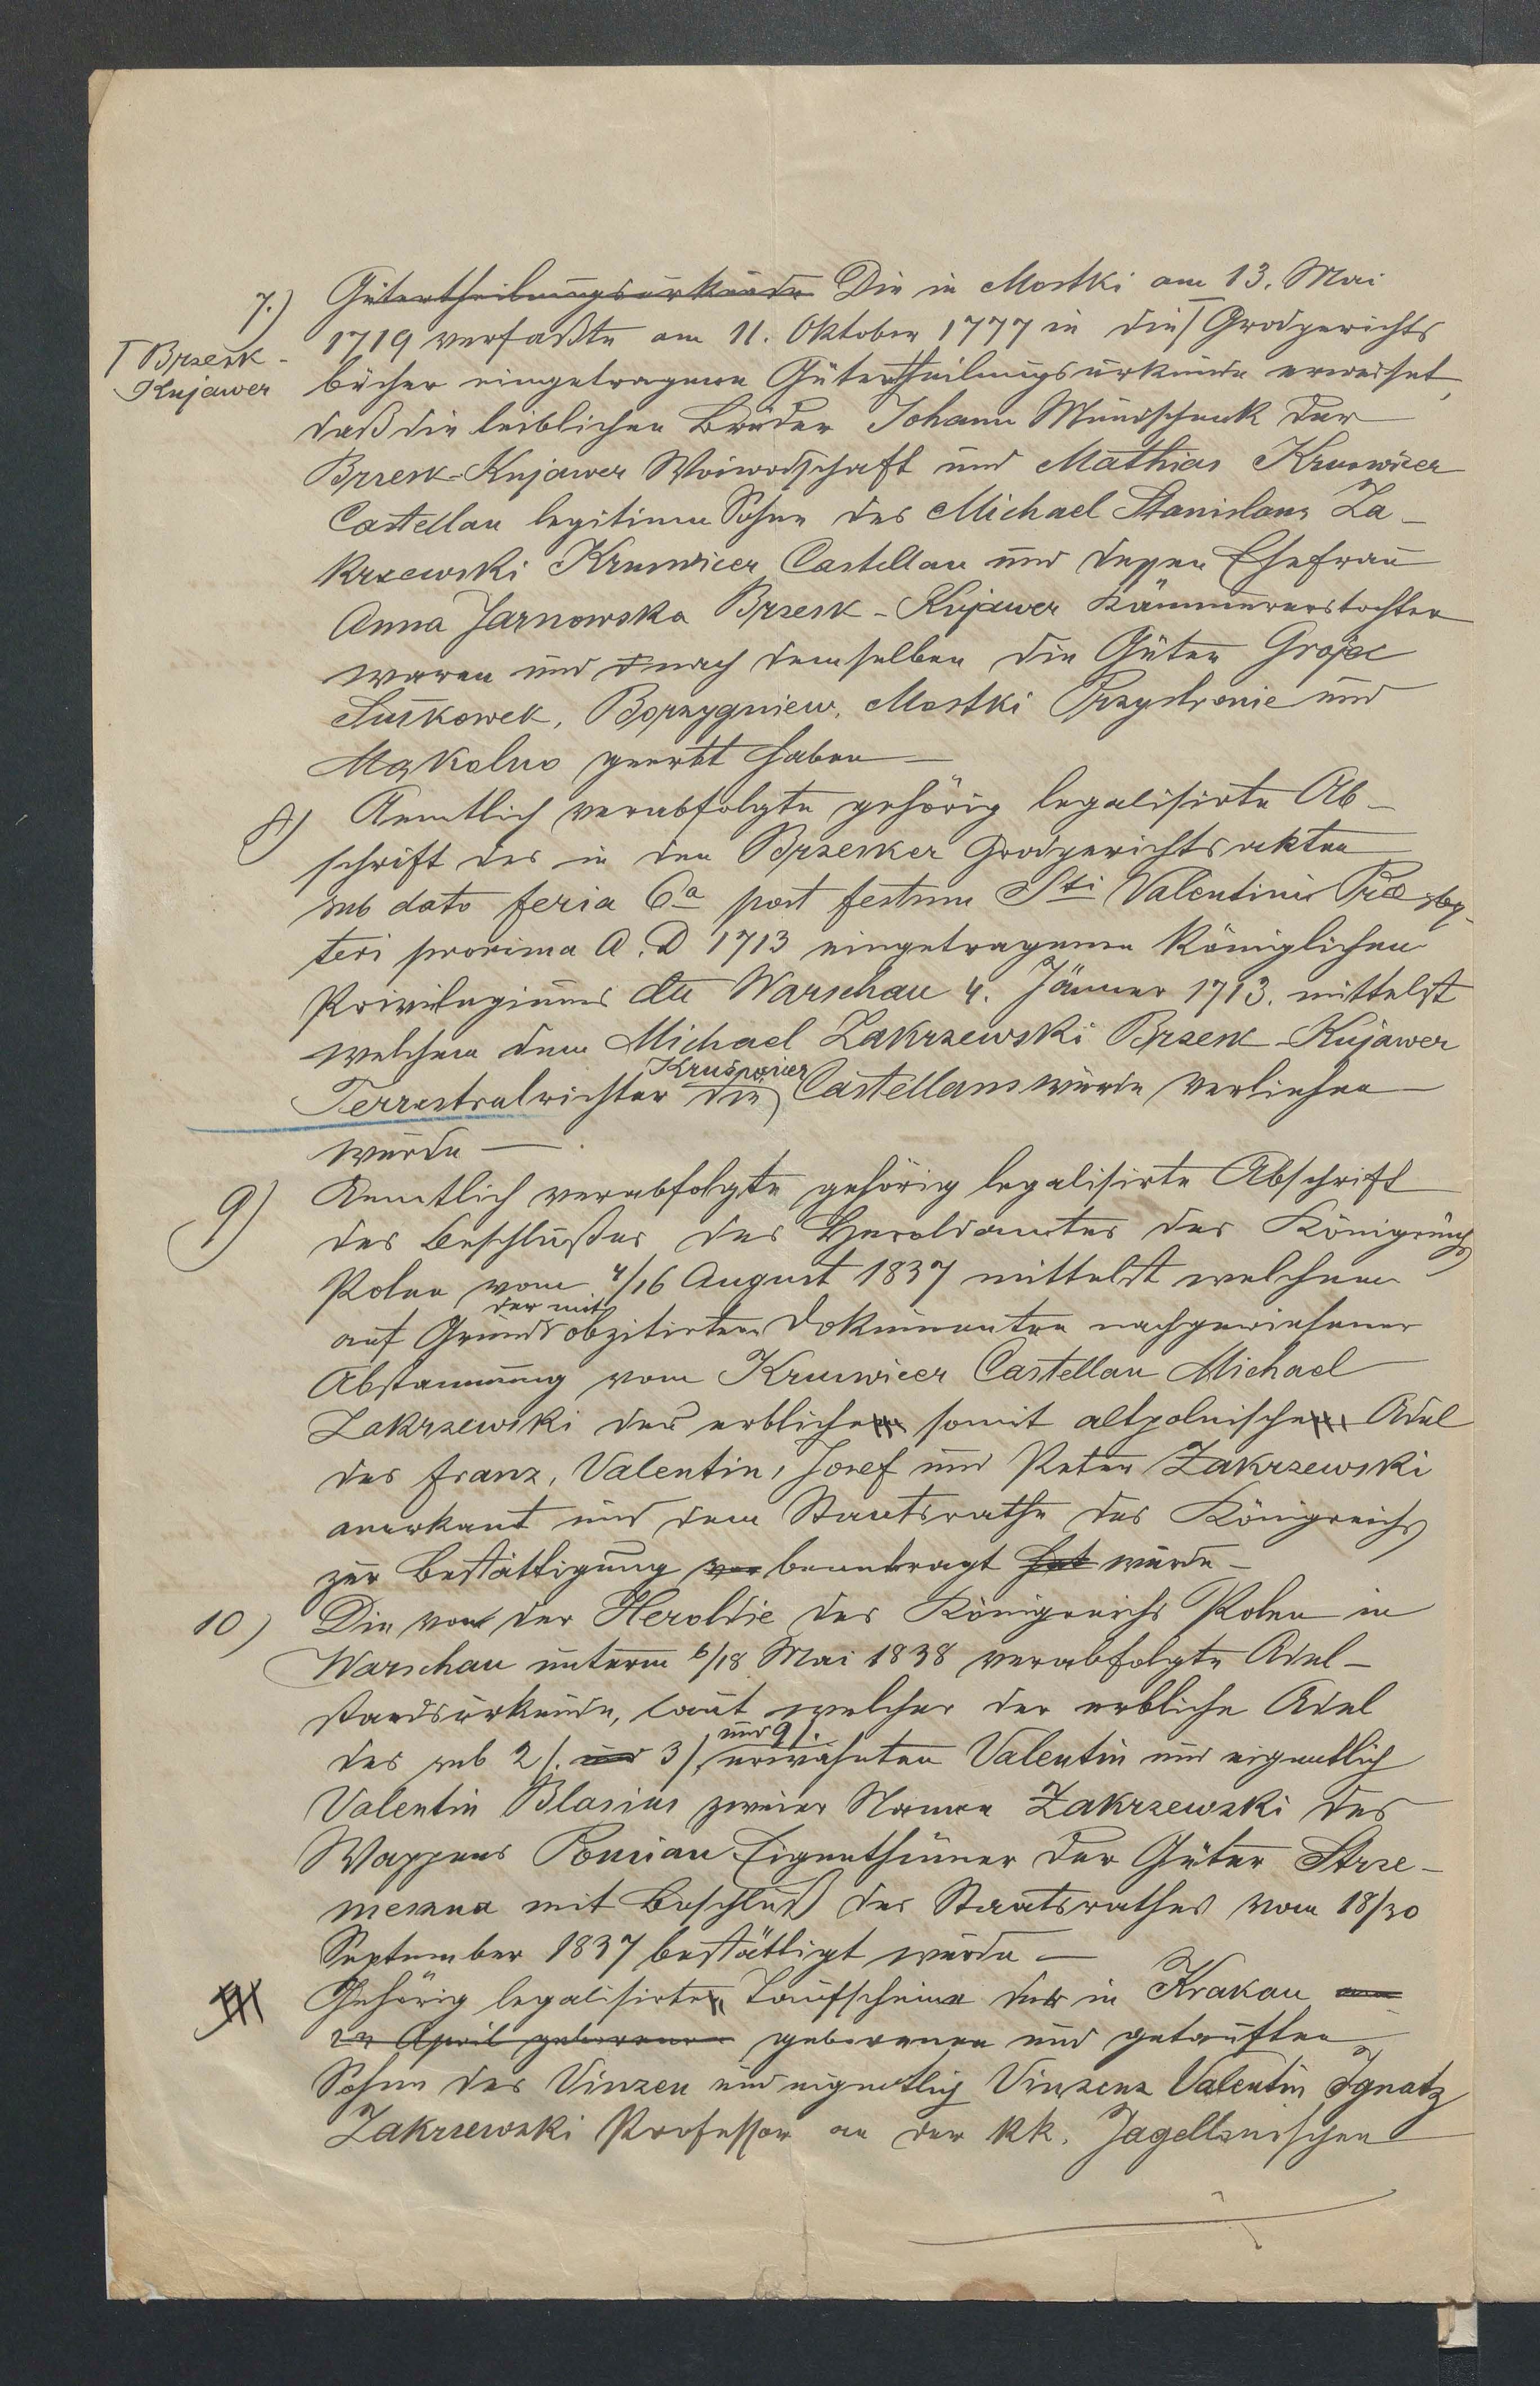 7.) Gütertheilungsurkunde Die in Mostki am 13. Mai
1719 verfaßte am 11. Oktober 1777 in die ꟾ Grodgerichts
ꟾ Brzesk-
Kujawer
bücher eingetragene Gütertheilungsurkunde erweiset,
daß die leiblichen Brüder Johann Mundschenk der
Brzesk-Kujawer Woiwodschaft und Mathias Kruswicer
Castellan legitime Söhne des Michael Stanislaus Za-
krzewski Kruswicer Castellan und dessen Ehefrau
Anna Jarnowska Brzesk-Kujawer Kämmererstochter
waren und nach demselben die Güter Grojec
Suśkowek, Boprzygniew, Mostki Przystronie und
Mąkolno geerbt haben —
8) Aemtlich verabfolgte gehörig legalisirte Ab-
schrift des in den Brzesker Grodgerichtsakten
sub dato feria 6a post festum Sti Valentini Præsby-
teri proxima A. D 1713 eingetragenen Königlichen
Privilegiums dto Warschau 4. Jänner 1713. mittelst
welchem dem Michael Zakrzewski Brzesk-Kujawer
Kruświcer
Terrestralrichter die Castellanswürde verliehen
wurde —
9) Aemtlich verabfolgte gehörig legalisirte Abschrift
des Beschlußes des Heroldamtes des Königreichs
Polen vom 4/16 August 1837 mittelst welchem
der mit
auf Grund obzitirten Dokumenten nachgewiesener
Abstammung vom Kruswicer Castellan Michael
Zakrzewski der erbliche somit altpolnische Adel
des Franz, Valentin, Josef und Peter Zakrzewski
anerkant und dem Staatsrathe des Königreichs
zur Bestättigung vor beantragt hat wurde —
10) Die von der Heroldie des Königreichs Polen in
Warschau unterm 6/18 Mai 1838 verabfolgte Adel-
standsurkunde, laut welcher der erbliche Adel
und 9/.
des sub 2/. und 3/. erwähnten Valentin und eigentlich
Valentin Blasius zweier Namen Zakrzewski des
Wappens Pomian Eigenthümer der Güter Strze-
meszna mit Beschluß des Staatsrathes vom 18/30
September 1837 bestättigt wurde —
Gehörig legalisirte Taufscheine der in Krakau am
22 April geborenen geborenen und getauften
Söhne des Vinzen und eigentlich Vinzenz Valentin Ignatz
Zakrzewski Professor an der kk. Jagellonischen